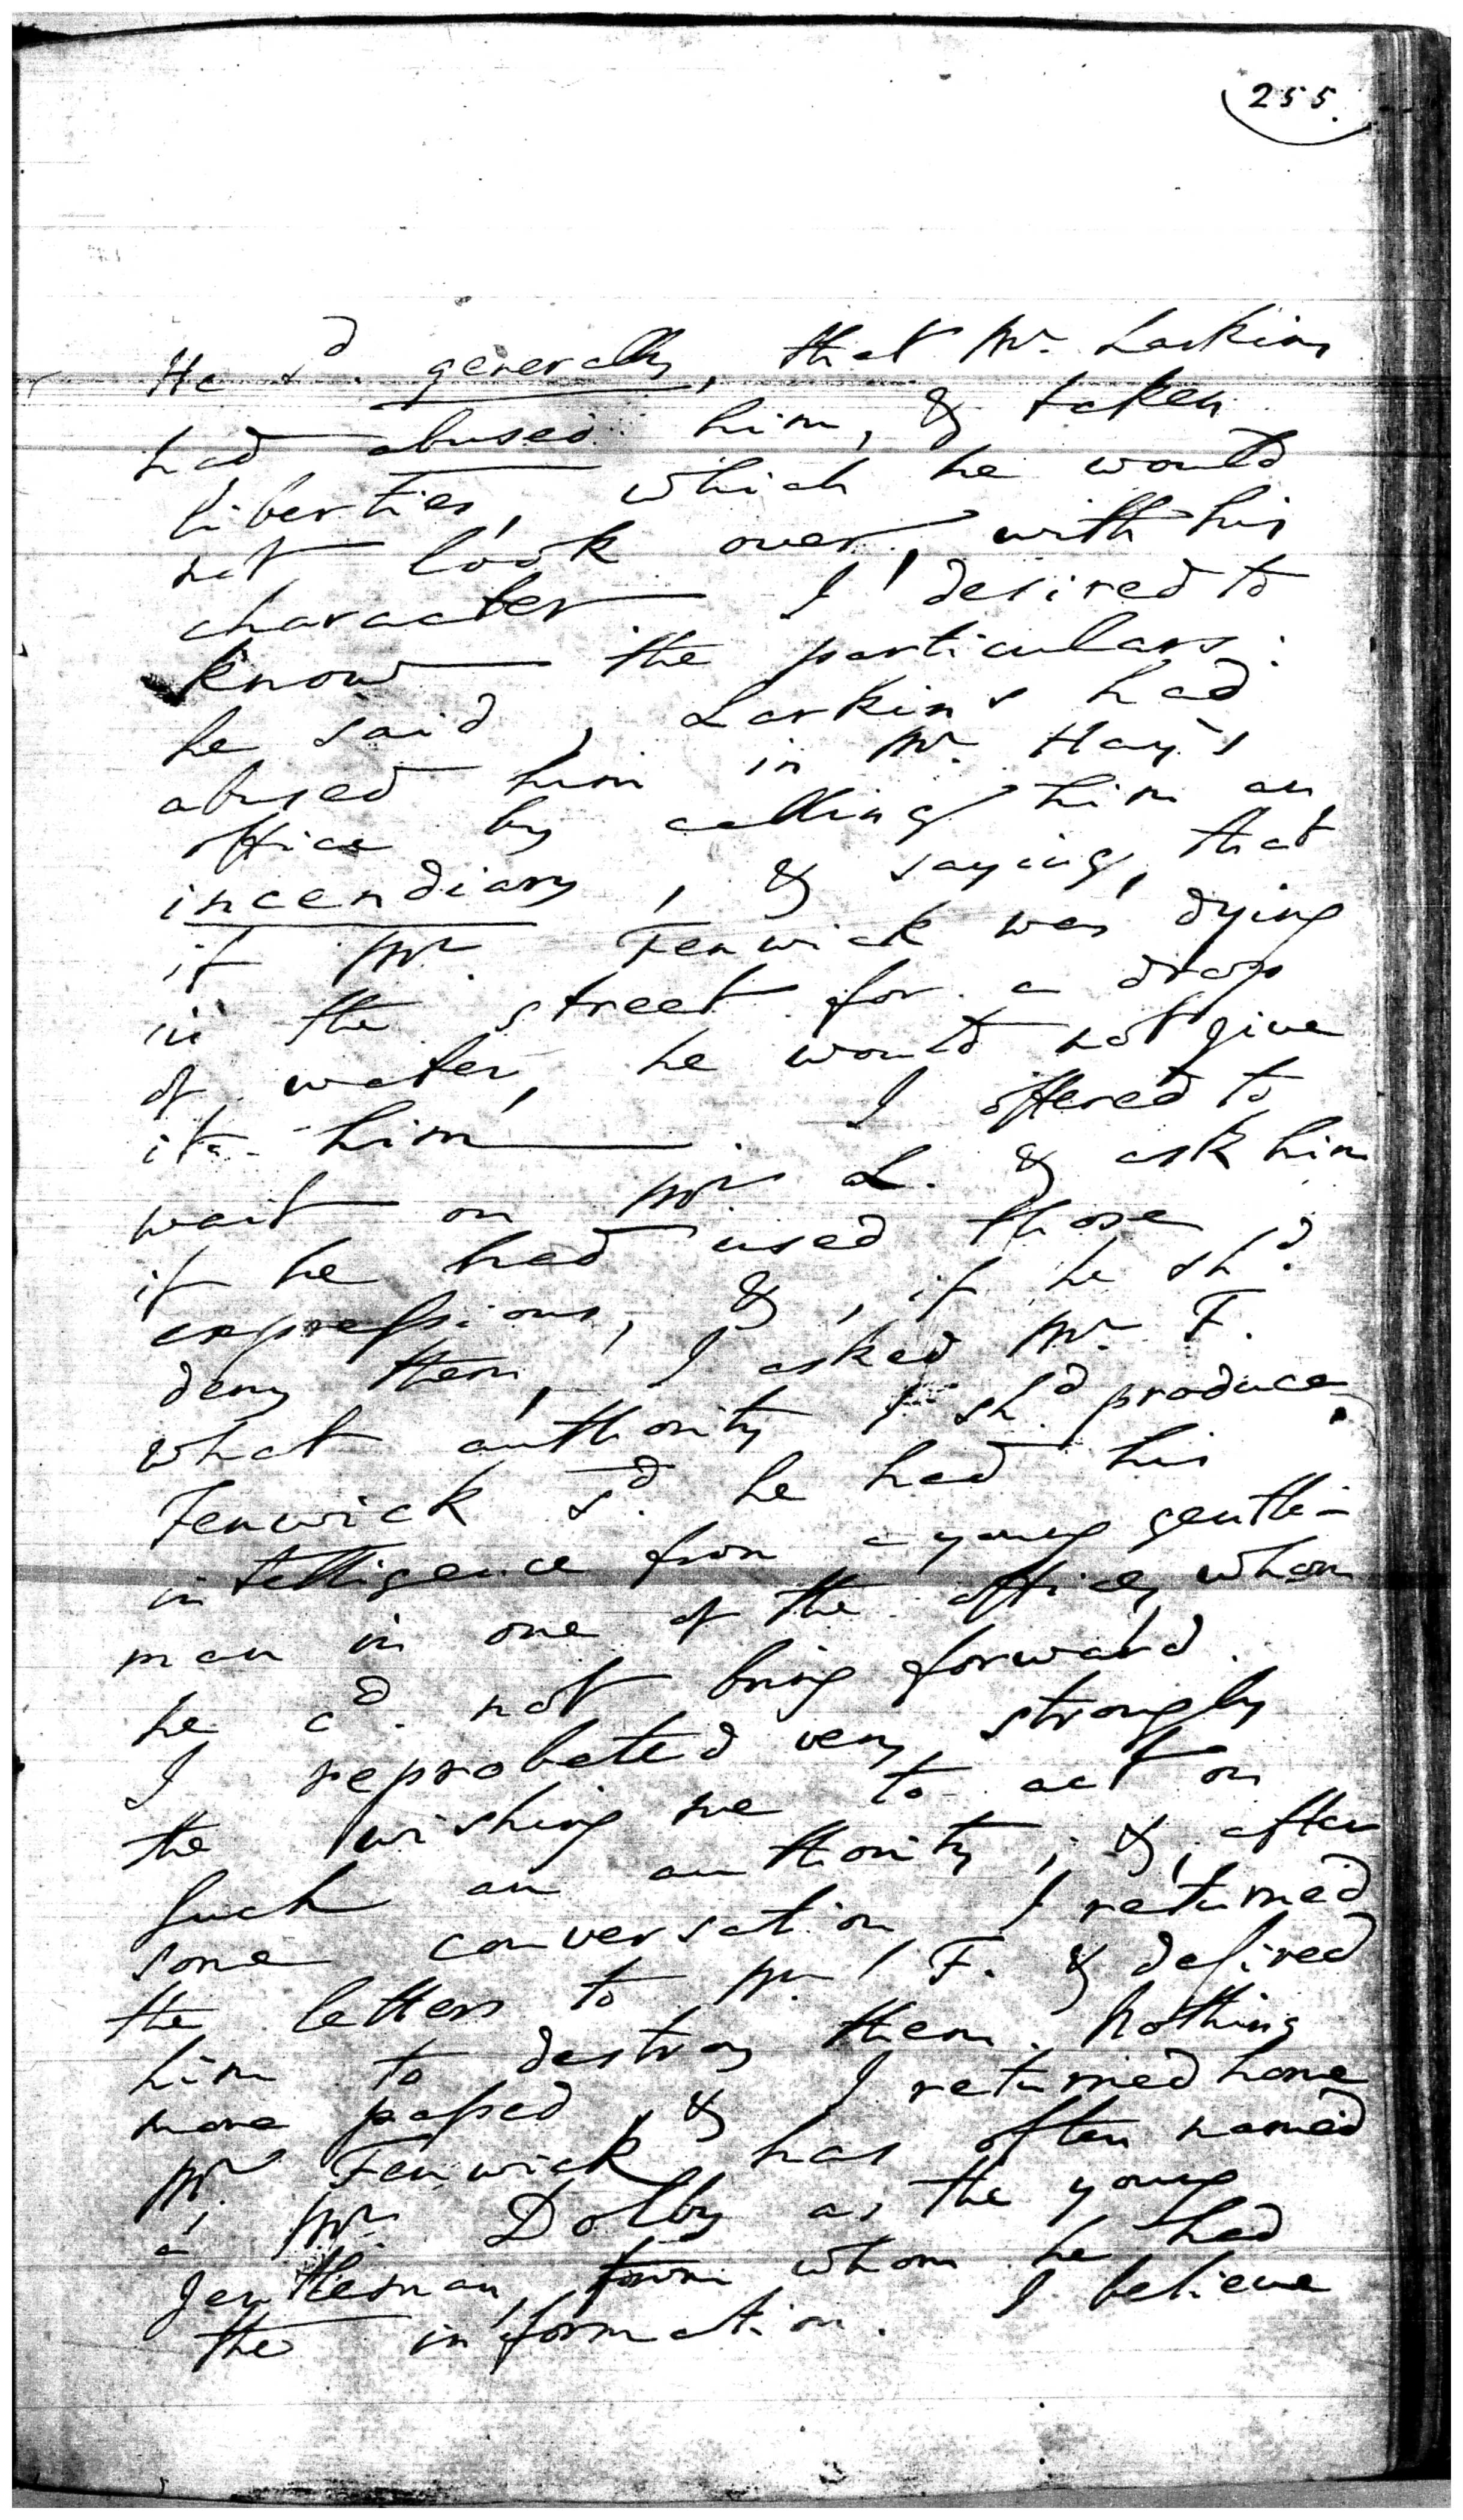 255.
He sd. generally, that Mr. Larkins
had abused him, & taken
liberties, which he would
not look over, with his
character I desired to
know the particulars:
he said, Larkins had
abused him in Mr. Hay's
office by calling him an
incendiary, & saying, that
if Mr. Fenwick was dying
in the street for a drop
of water, he would not give
it him. I offered to
wait on Mr. L. & ask him
if he had used those
expressions, &, if he shd.
deny them, I asked Mr. F.
what authority I shd. produce.
Fenwick sd. he had his
intelligence from a young gentle-
man in one of the offices, whom
he cd. not bring forward.
I reprobated very strongly
the wishing me to act on
such an authority; &, after
some conversation, I returned
the letters to Mr. F. & desired
him to destroy them. Nothing
more passed, & I returned home
Mr. Fenwick has often named
a Mr. Dolby as the young
gentleman, from whom he had
the information. I believe